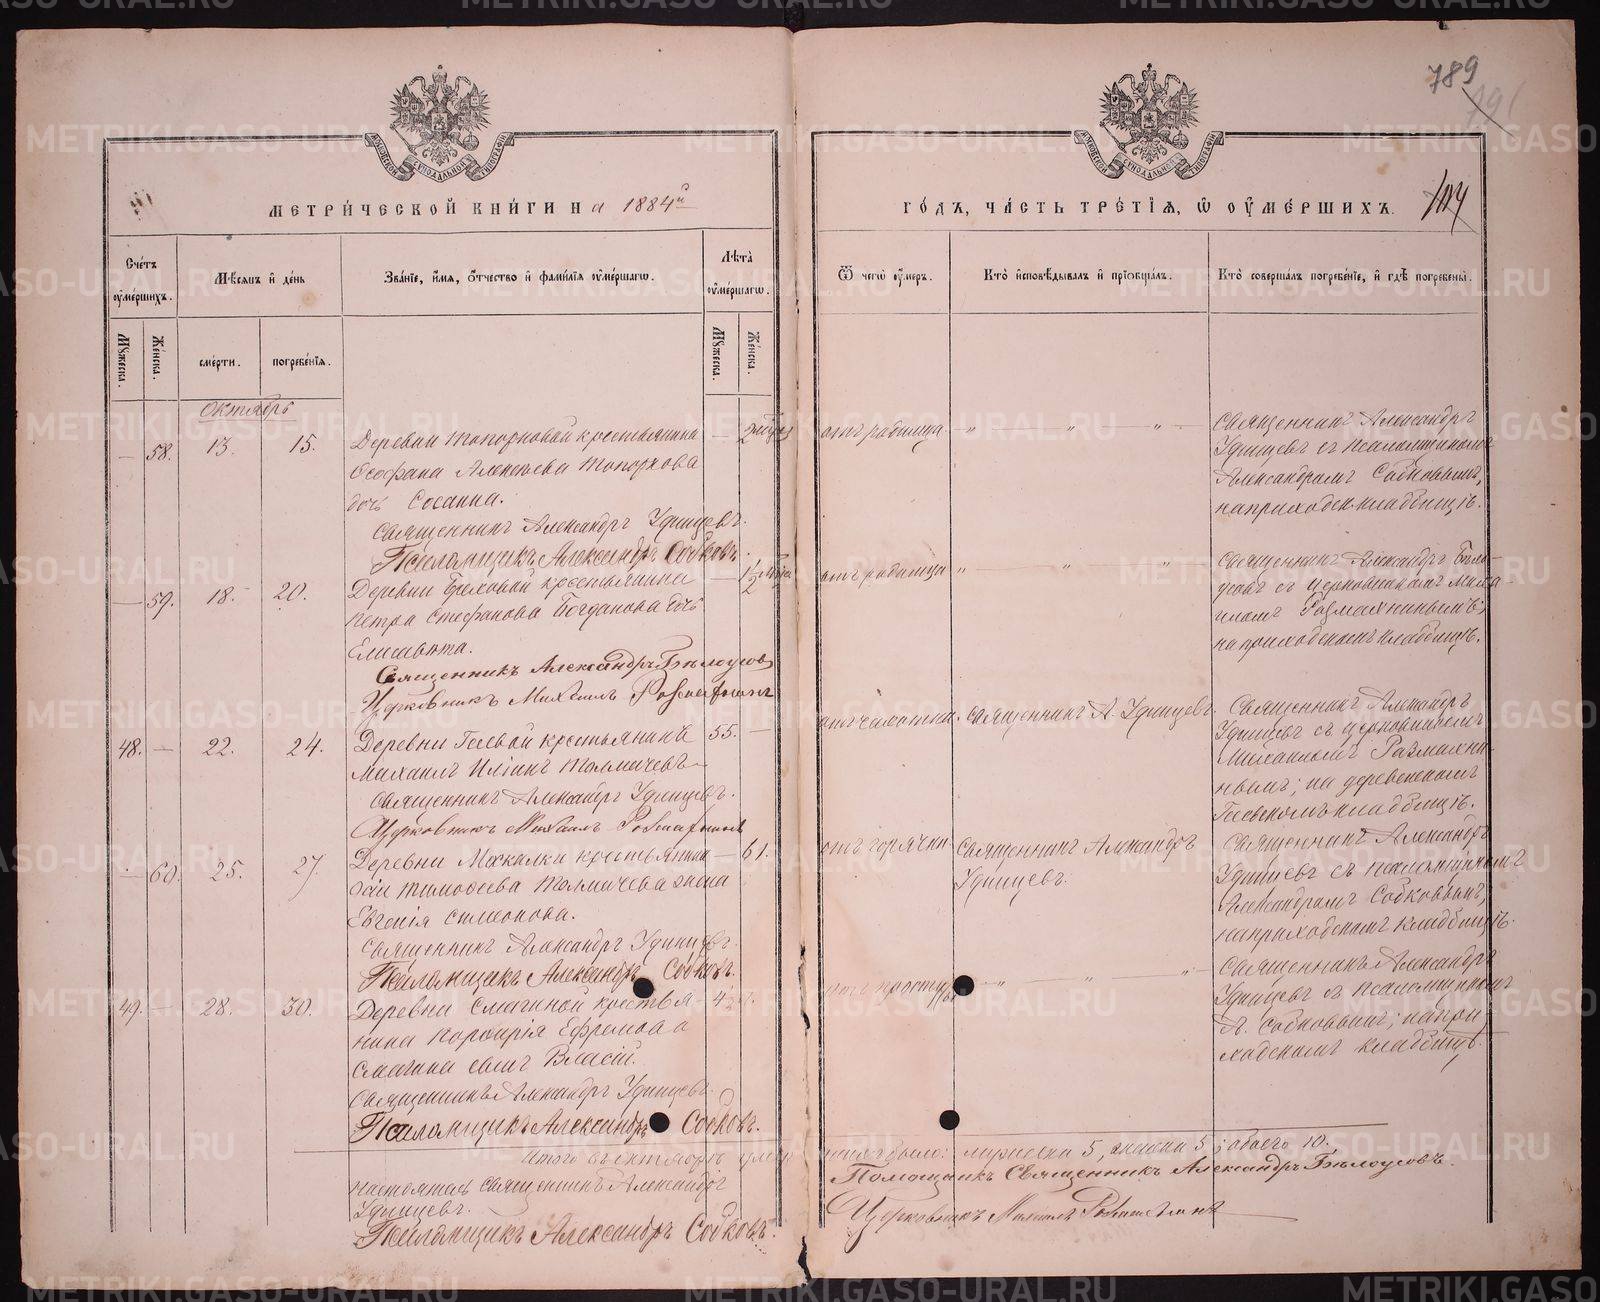 789
МЕТРИ́ЧЕСКОЙ КНИ́ГИ на 1884й
ГО́ДЪ, ЧА́СТЬ ТРЕ́ТІѦ, Ѡ҆ ОУ҆МЕ́РШИХЪ.
Сче́тъ оу҆ме́ршихъ.
Мѣ́сѧцъ и҆ де́нь
Зва́нїе, и҆́мѧ, ѻ҆́тчество и҆ фами́лїѧ оу҆ме́ршагѡ.
Лѣ́та оу҆ме́ршагѡ.
Ѿ чегѡ̀ оу҆́меръ.
Кто̀ и҆сповѣ́дывалъ и҆ прїѡбща́лъ.
Кто̀ соверша́лъ погребе́нїе, и҆ гдѣ̀ погребены̀.
Мꙋ́жеска.
Же́нска.
сме́рти.
погребе́нїѧ.
Мꙋ́жеска.
Же́нска.
Октябрь
— 58. 13. 15.
Деревни Топорковой крестьянина
Ѳеофана Алексѣева Топоркова
дочь Сосанна.
Священникъ Александръ Удинцевъ.
Псаломщикъ Александръ Собковъ.
отъ родимца
Священникъ Александръ
Удинцевъ съ псаломщикомъ
Александромъ Собковымъ,
на приходск. кладбищѣ.
— 59. 18. 20.
Деревни Бреховой крестьянина
Петра Стефанова Богданова дочь
Елисавета.
Священникъ Александръ Бѣлоусовъ
Церковникъ Михаилъ Размахнинъ
отъ родимца
Священникъ Александръ Бѣло-
усовъ съ церковникомъ Миха
иломъ Размахнинымъ,
на приходскомъ кладбищѣ.
48. — 22. 24.
Деревни Гаевой крестьянинъ
Михаилъ Иліинъ Толмачевъ
55. —
Священникъ Александръ Удинцевъ.
Церковникъ Михаилъ Размахнинъ
отъ чахотки. Священникъ А. Удинцевъ.
Священникъ Александръ
Удинцевъ съ церковникомъ
Михаиломъ Размахни-
нымъ; на деревенскомъ
Гаевскомъ кладбищѣ.
— 60. 25. 27.
Деревни Москалки крестьянина
Тимоѳеева Толмачева жена
Евгенія Симеонова.
— 61.
Священникъ Александръ Удинцевъ.
Псаломщикъ Александръ Собковъ.
отъ горячки
Священникъ Александръ
Удинцевъ.
Священникъ Александръ
Удинцевъ съ псаломщикомъ
Александромъ Собковымъ,
на приходскомъ кладбищѣ.
49. — 28. 30.
Деревни Смагиной крестья-
нина Порфирія Ефремова
Смагина сынъ Власій.
Священникъ Александръ Удинцевъ.
Псаломщикъ Александръ Собковъ.
отъ простуды
Священникъ Александръ
Удинцевъ съ псаломщикомъ
А. Собковымъ; на при-
ходскомъ кладбищѣ.
Итого въ октябрѣ умер
шихъ было: мужеска 5, женска 5; обоего 10.
Настоятель священникъ Александръ
Удинцевъ.
Псаломщикъ Александръ Собковъ.
Помощникъ Священникъ Александръ Бѣлоусовъ.
Церковникъ Михаилъ Размахнинъ
METRIKI.GASO-URAL.RU